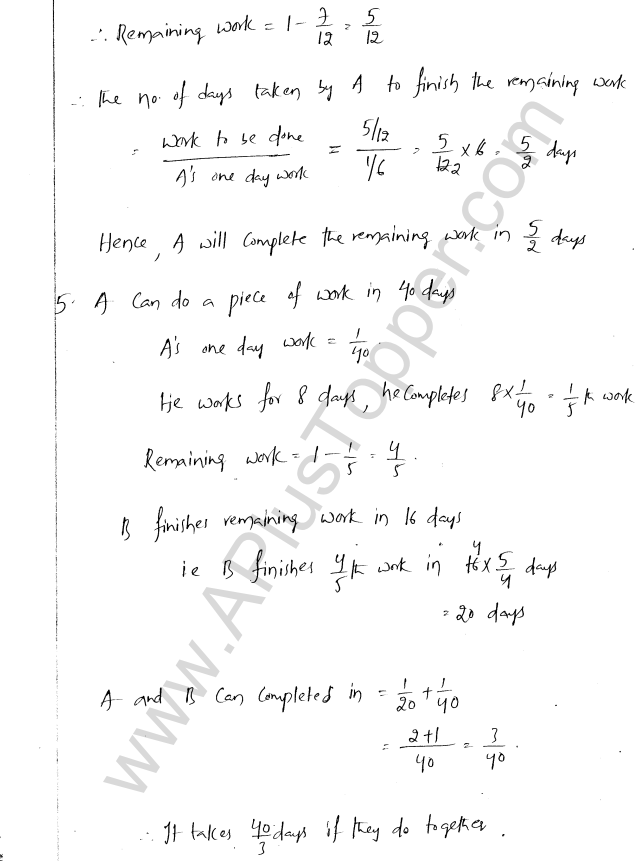 ∴ Remaining work = 1 - 7/12 = 5/12
∴ The no. of days taken by A to finish the remaining work
= work to be done / A's one day work = 5/12 / 1/6 = 5/12 2 × 6 = 5/2 days
Hence, A will complete the remaining work in 5/2 days
5. A Can do a piece of work in 40 days
A's one day work = 1/40.
He works for 8 days, he Completes 8 × 1/40 = 1/5 th work
Remaining work = 1 - 1/5 = 4/5.
B finishes remaining work in 16 days
ie B finishes 4/5 th work in 16 4 × 5/4 days
= 20 days
A and B Can Completed in = 1/20 + 1/40
= 2+1/40 = 3/40.
∴ It takes 40/3 days if they do together.
www.APlusTopper.com